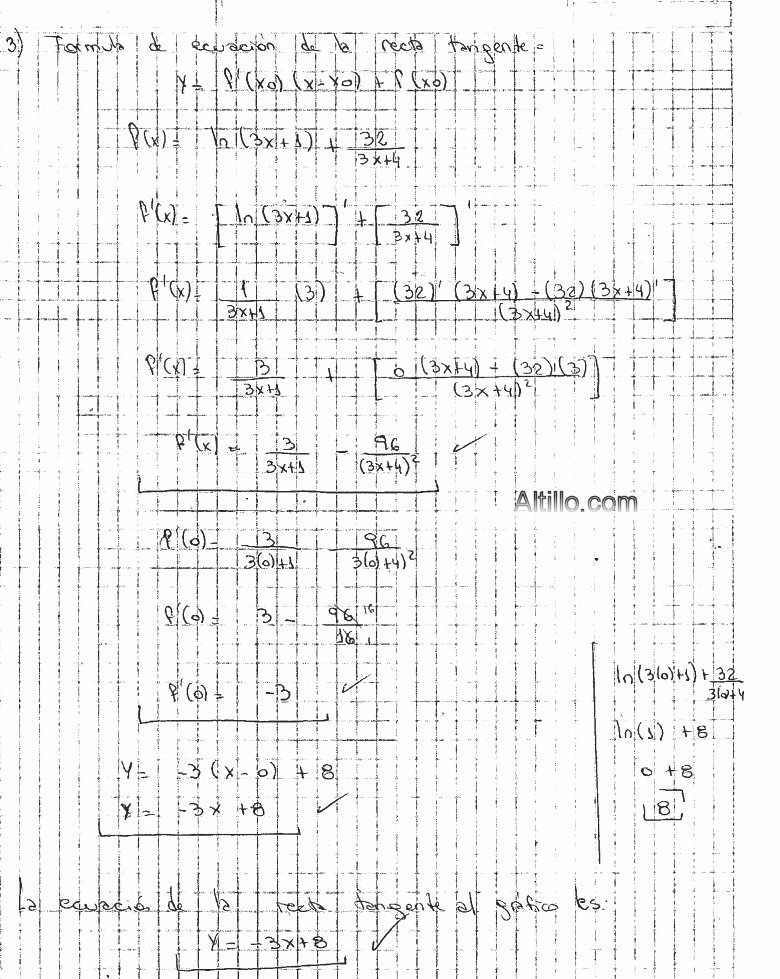 3) Formula de ecuación de la recta tangente =
Y = f'(x0) (x-x0) + f(x0)
f(x) = ln (3x+1) + 32/(3x+4)
f'(x) = [ln (3x+1)]' + [32/(3x+4)]'
f'(x) = 1/(3x+1) (3) + [((32)' (3x+4) - (32) (3x+4)')/(3x+4)²]
f'(x) = 3/(3x+1) + [(0 (3x+4) - (32) (3))/(3x+4)²]
f'(x) = 3/(3x+1) - 96/(3x+4)² ✓
Altillo.com
f'(0) = 3/(3(0)+1) 96/(3(0)+4)²
f'(0) = 3 - 96/16
f'(0) = -3 ✓
Y = -3 (x-0) + 8
Y = -3x +8 ✓
ln(3(0)+1) + 32/(3(0)+4
ln(1) + 8
0 + 8
8
La ecuación de la recta tangente al gráfico es:
Y = -3x+8 ✓